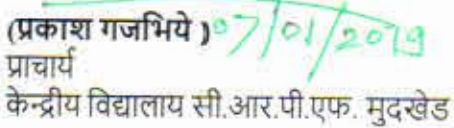 (प्रकाश गजभिये ) 07/01/2019
प्राचार्य
केन्द्रीय विद्यालय सी.आर.पी.एफ. मुदखेड